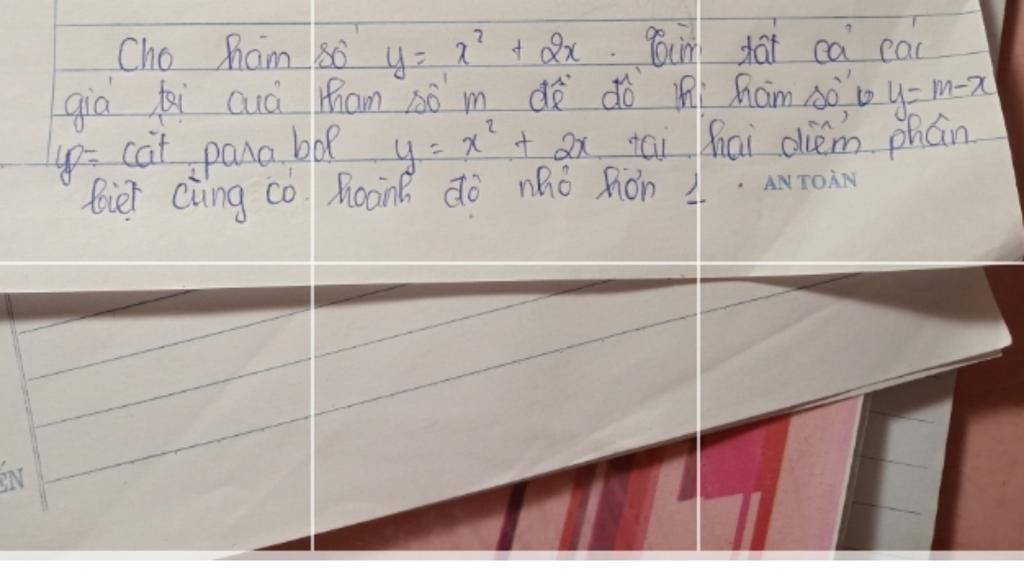 Cho hàm số y = x² + 2x . Tìm tất cả các
giá trị của tham số m để đồ thị hàm số y = m - x
y = cắt parabol y = x² + 2x tại hai điểm phân
biệt cùng có hoành độ nhỏ hơn 1
AN TOÀN
ẾN